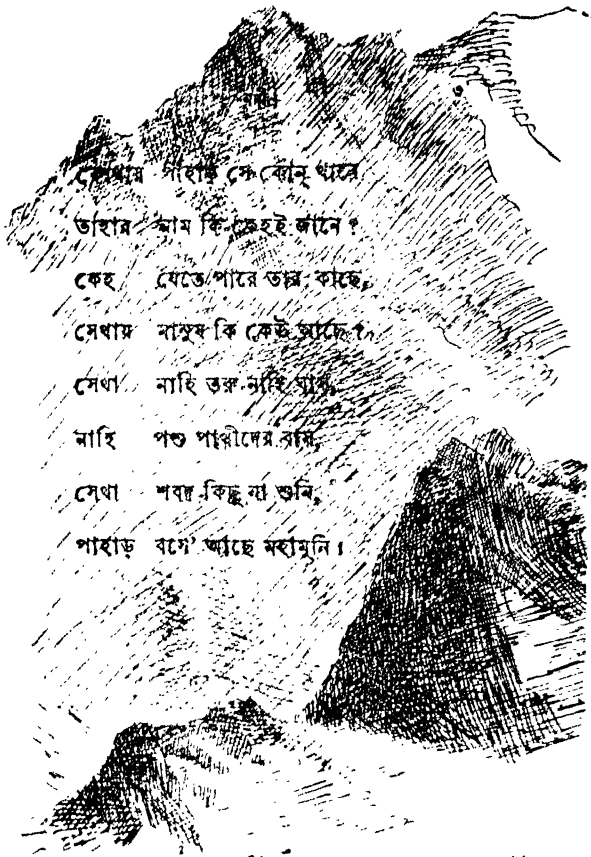 কোথায় পাহাড় সে কোন্ খানে
তাহার নাম কি কেহই জানে ?
কেহ যেতে পারে তার কাছে,
সেথায় মানুষ কি কেউ আছে ?
সেথা নাহি তরু নাহি ঘাস,
নাহি পশু পাখীদের বাস,
সেথা শবদ কিছু না শুনি,
পাহাড় বসে' আছে মহামুনি।